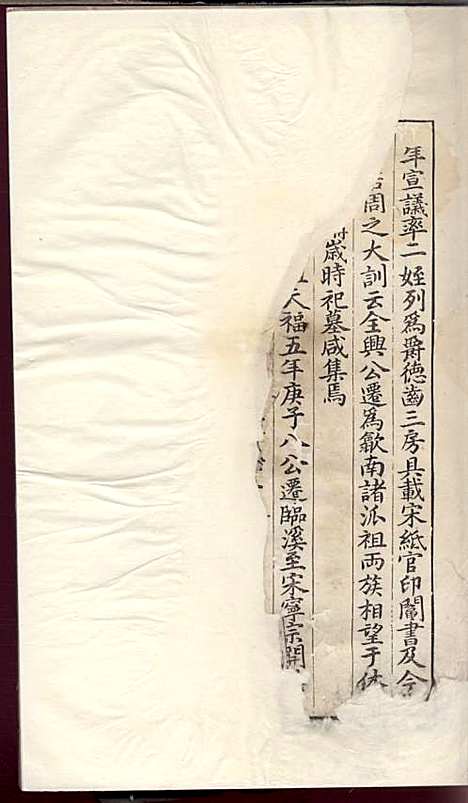 年宣議率二姪列爲爵德齒三房具載宋紙官印鬮書及今
周之大訓云全興公遷爲歙南諸派祖兩族相望于休
歲時祀墓咸集焉
天福五年庚子八公遷臨溪至宋寧宗開